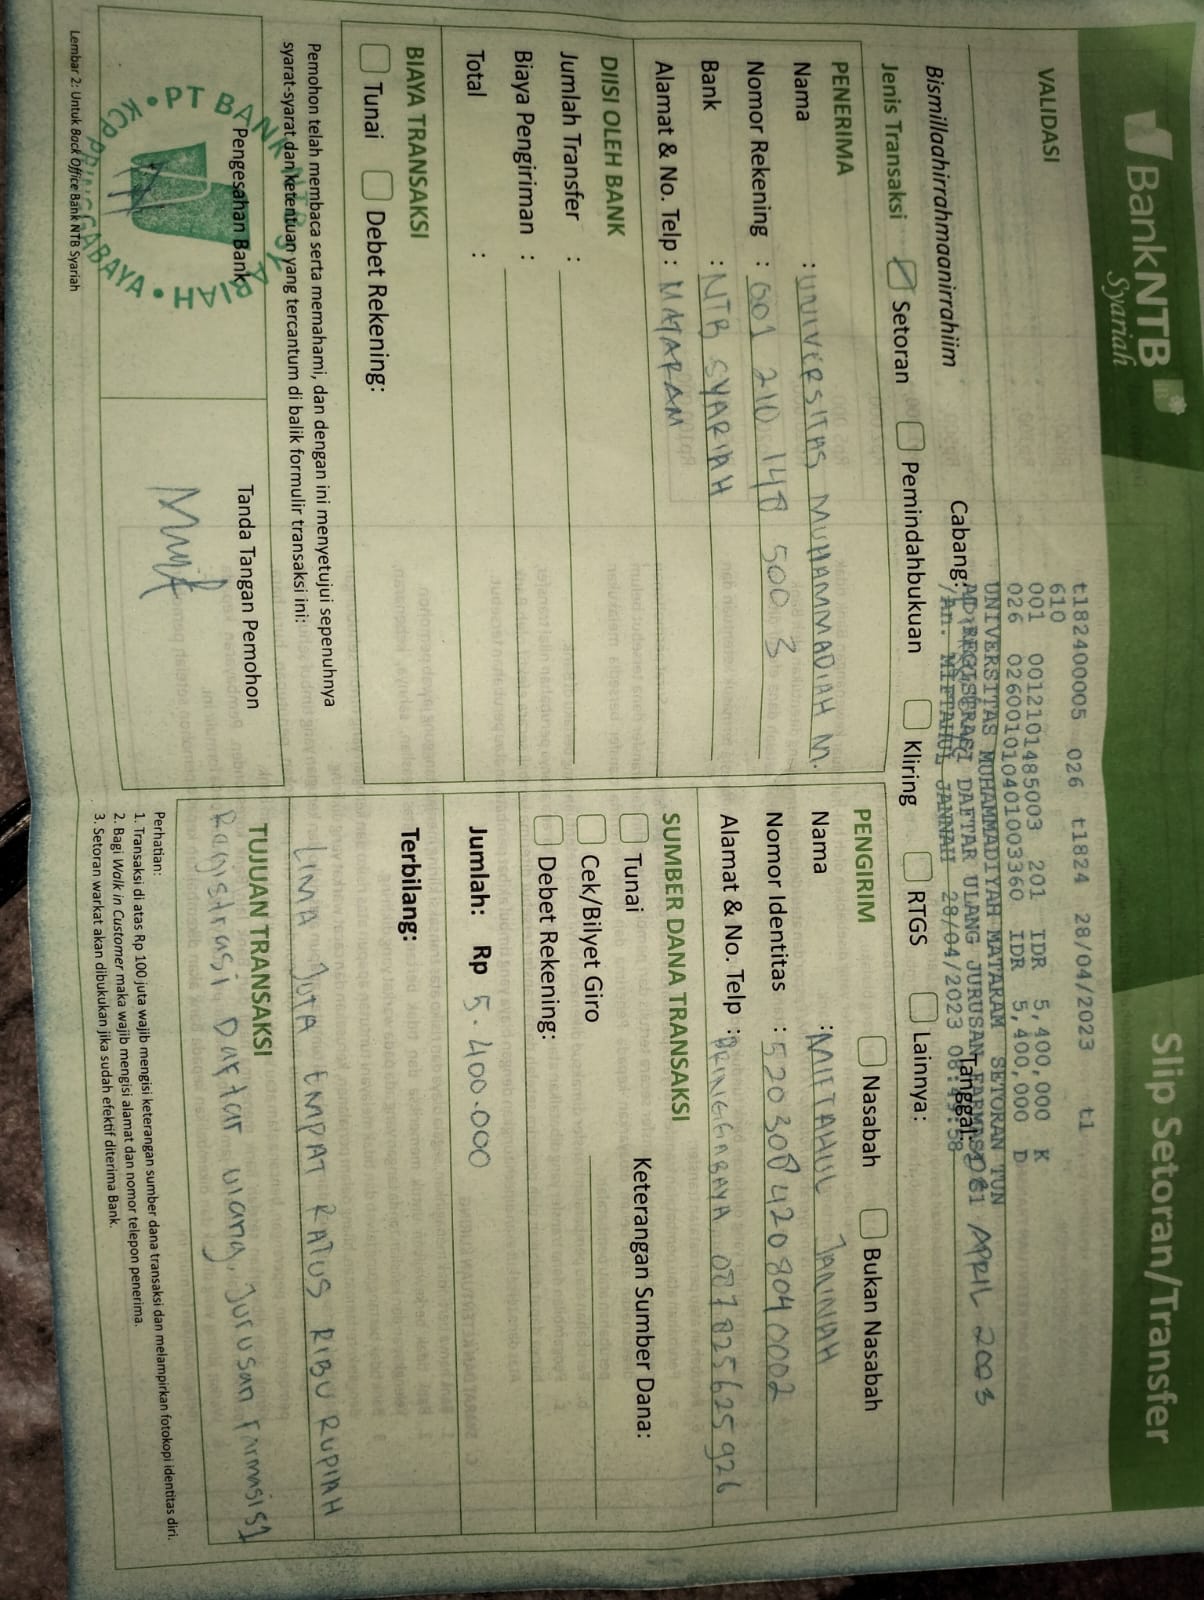 BankNTB
Syariah
Slip Setoran/Transfer
VALIDASI
t182400005 026 t1824 28/04/2023 t1
610
001 001210148​5003 201 IDR 5,400,000 K
026 0260010104010​03360 IDR 5,400,000 D
UNIVERSITAS MUHAMMADIYAH MATARAM SETORAN TUN
AP REGISTRASI DAFTAR ULANG JURUSAN FARMASI S1
/An. MIFTAHUL JANNAH 28/04/2023 08:49:58
Bismillaahirrahmaanirrahiim
Cabang:
Tanggal: APRIL 2003
Jenis Transaksi Setoran Pemindahbukuan Kliring RTGS Lainnya :
PENERIMA
Nama : UNIVERSITAS MUHAMMADIAH M.
Nomor Rekening : 001 210 148 500 3
Bank : NTB SYARIAH
Alamat & No. Telp : MATARAM
PENGIRIM Nasabah Bukan Nasabah
Nama : MIFTAHUL JANNAH
Nomor Identitas : 5203084208040002
Alamat & No. Telp : PRINGGABAYA 087825625926
DIISI OLEH BANK
Jumlah Transfer :
Biaya Pengiriman :
Total :
SUMBER DANA TRANSAKSI
Tunai Keterangan Sumber Dana:
Cek/Bilyet Giro
Debet Rekening:
BIAYA TRANSAKSI
Tunai Debet Rekening:
Jumlah: Rp 5.400.000
Terbilang:
LIMA JUTA EMPAT RATUS RIBU RUPIAH
Pemohon telah membaca serta memahami, dan dengan ini menyetujui sepenuhnya
syarat-syarat dan ketentuan yang tercantum di balik formulir transaksi ini:
TUJUAN TRANSAKSI
Ragistrasi Daftar ulang, Jurusan Farmasi S1
Pengesahan Bank
PT BANK NTB SYARIAH
KCP PRINGGABAYA
Tanda Tangan Pemohon
Perhatian:
1. Transaksi di atas Rp 100 juta wajib mengisi keterangan sumber dana transaksi dan melampirkan fotokopi identitas diri.
2. Bagi Walk in Customer maka wajib mengisi alamat dan nomor telepon penerima.
3. Setoran warkat akan dibukukan jika sudah efektif diterima Bank.
Lembar 2: Untuk Back Office Bank NTB Syariah